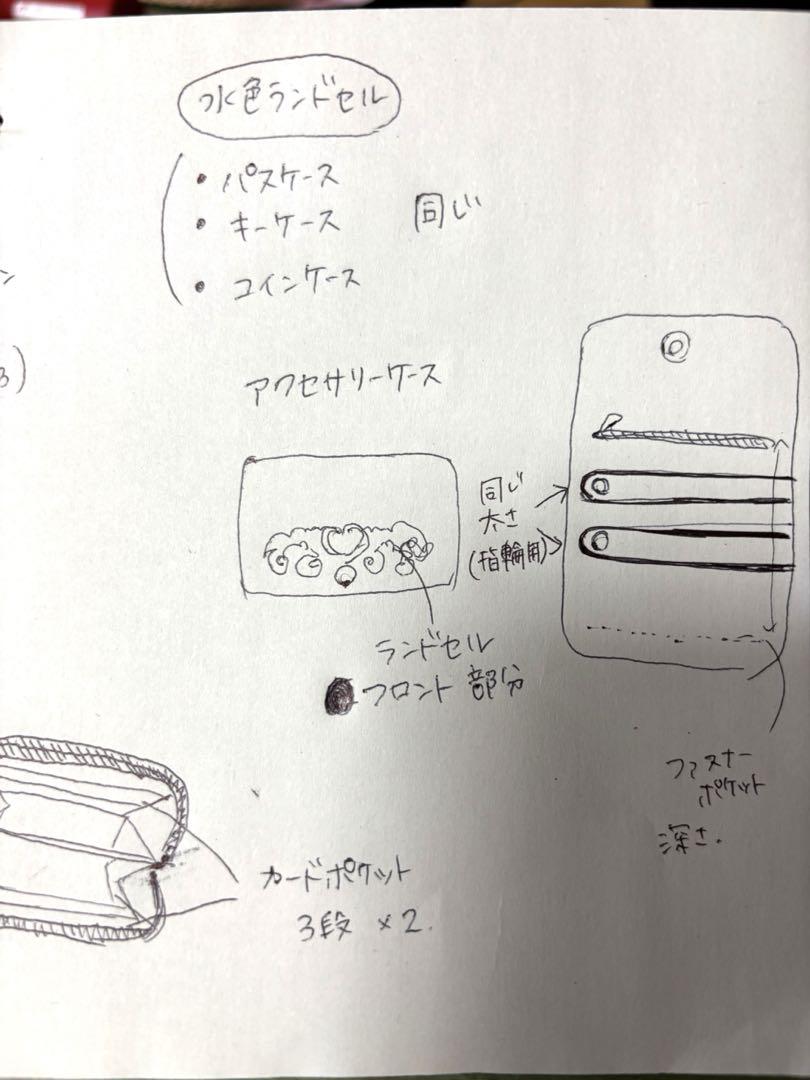 水色ランドセル
• パスケース
• キーケース
同じ
• コインケース
アクセサリーケース
同じ
太さ
(指輪用)
ランドセル
フロント部分
ファスナー
ポケット
深さ.
カードポケット
3段 × 2.